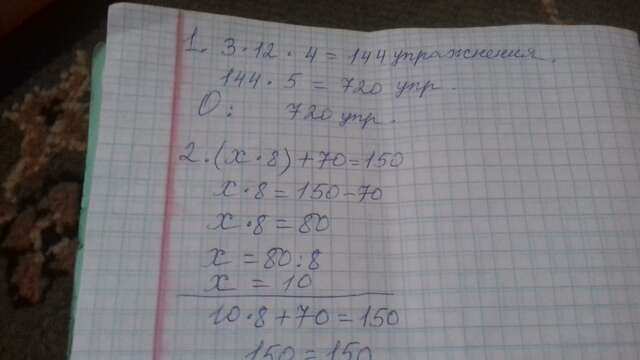 1. 3 · 12 · 4 = 144 упражнения.
144 · 5 = 720 упр.
О: 720 упр.
2. (x · 8) + 70 = 150
x · 8 = 150 - 70
x · 8 = 80
x = 80 : 8
x = 10
10 · 8 + 70 = 150
150 = 150